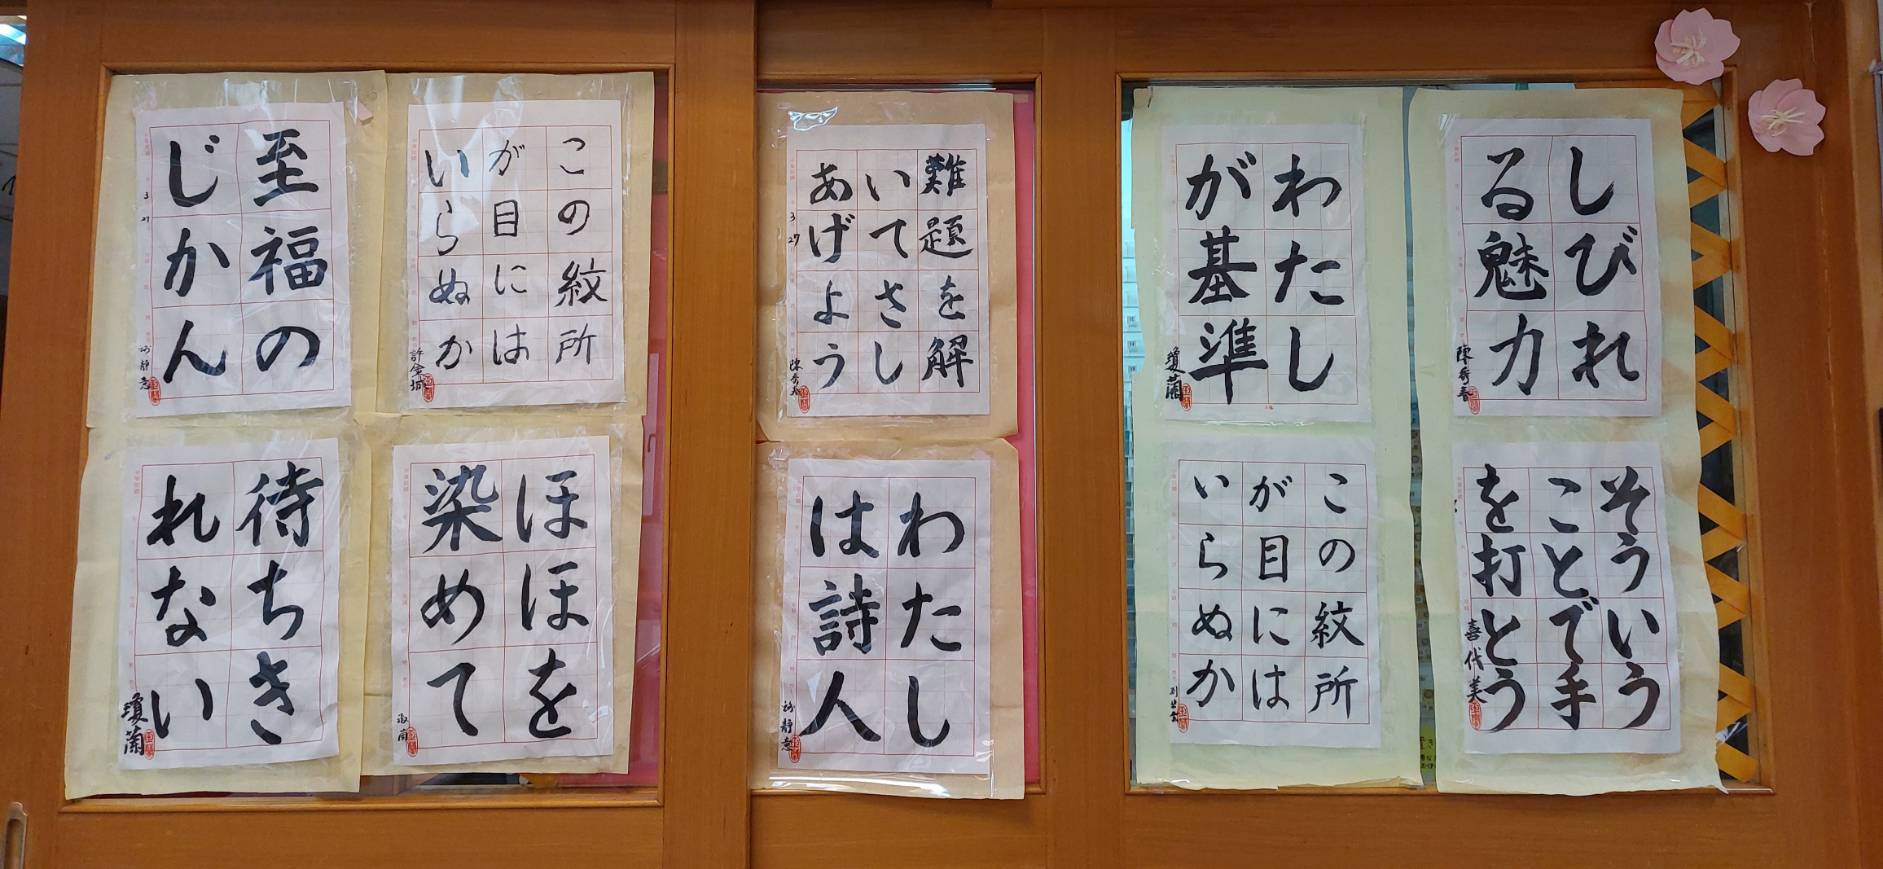 至福の
じかん
この紋所
が目には
いらぬか
許金城
難題を解
いてさし
あげよう
陳秀春
わたし
が基準
瓊蘭
しびれ
る魅力
陳秀春
待ちき
れない
瓊蘭
ほほを
染めて
わたし
は詩人
この紋所
が目には
いらぬか
そういう
ことで手
を打とう
喜代美